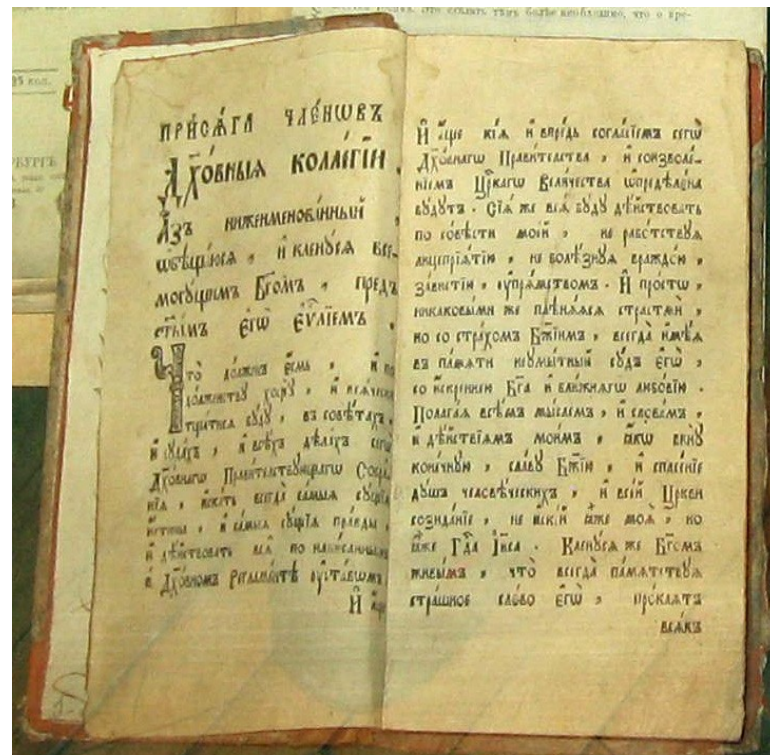 что о вре-
25 коп.
ПРИСѦ́ГА ЧЛЕ́НѠВЪ
ДꙊХО́ВНЫѦ КОЛЛЕ́ГІИ
А҆́зъ нижеименова́нный ,
ѡ҆бѣща́юсѧ , и҆ клену́сѧ все-
могу́щимъ Бг҃омъ , предъ
ст҃ы́мъ є҆гѡ̀ є҆ѵⷢ҇лїемъ ,
Что̀ до́лженъ є҆́смь , и҆ по
до́лженству хощꙋ̀ , и҆ всѧ́чески
тщатисѧ бꙋ́дꙋ , въ совѣ́тахъ ,
и҆ сꙋда́хъ , и҆ всѣ́хъ дѣ́лѣхъ сегѡ̀
Дꙋхо́внагѡ Прави́тельствꙋющагѡ Собра́-
нїѧ , и҆ска́ть всегда̀ са́мыѧ сꙋ́щїѧ
и҆́стины , и҆ са́мыѧ сꙋ́щїѧ пра́вды ,
и҆ дѣ́йствовать всѧ̀ по напи́саннымъ
в Дꙋхо́вномъ Регла́ментѣ ᲂу҆ста́вѡмъ
И҆ а҆́ще
И҆ а҆́ще кїѧ̑ и҆ впре́дь согла́сїемъ сегѡ̀
Дꙋхо́внагѡ Прави́телства , и҆ соизволе́-
нїемъ Цр҃кагѡ Вели́чества ѡ҆предѣлена̀
бꙋ́дꙋтъ . Сїѧ̑ же всѧ̑ бꙋ́дꙋ дѣ́йствовать
по со́вѣсти мое́й , не рабо́тствꙋѧ
лицепрїѧ́тїю , не болѣ́знꙋѧ враждо́ю ,
за́вистїю , ᲂу҆прѧ́мствомъ . И҆ про́стѡ ,
никаковы́ми же плѣнѧ́ѧсѧ страстьмѝ ,
но со стра́хомъ Бж҃їимъ , всегда̀ и҆мѣ́ѧ
въ па́мѧти неумы́тный сꙋ́дъ є҆гѡ̀ ,
со и҆́скреннею Бг҃а и҆ бли́жнѧгѡ любо́вїю .
Полага́ѧ всѣ́мъ мы́слемъ , и҆ слова́мъ ,
и҆ дѣ́йствїѧмъ мои́мъ , ꙗ҆́кѡ винꙋ̀
коне́чнꙋю , сла́вꙋ Бж҃їю , и҆ спасе́нїе
дꙋ́шъ человѣ́ческихъ , и҆ все́й Цр҃кви
созида́нїе , не и҆скі́й ꙗ҆̀же моѧ̑ , но
ꙗ҆̀же Гдⷭ҇а І҆и҃са . Клену́сѧ же Бг҃омъ
живы́мъ , что̀ всегда̀ па́мѧтствꙋѧ
стра́шное сло́во є҆гѡ̀ , про́клѧтъ
всѧ́къ